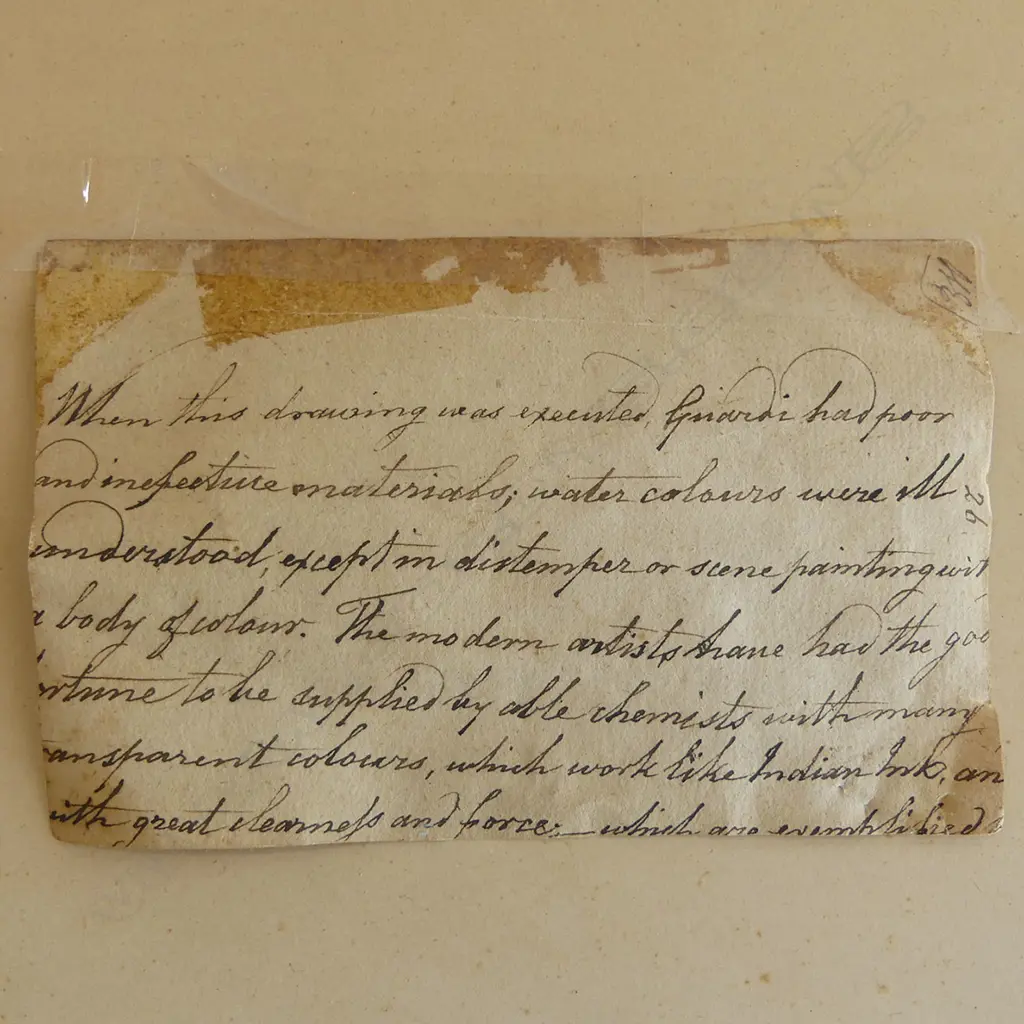 311
When this drawing was executed, Guardi had poor
and inefective materials; water colours were ill
26
understood, except in distemper or scene painting wit
a body of colour. The modern artists have had the goo
rtune to be supplied by able chemists with many
ansparent colours, which work like Indian Ink, an
ith great clearness and force;—which are exemplified